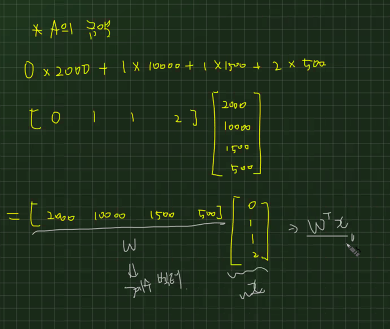 * A의 구매
0 × 2000 + 1 × 10000 + 1 × 1500 + 2 × 500
[ 0 1 1 2 ] [ 2000 10000 1500 500 ]
= [ 2000 10000 1500 500 ] [ 0 1 1 2 ] → Wᵀx
W x
⇓